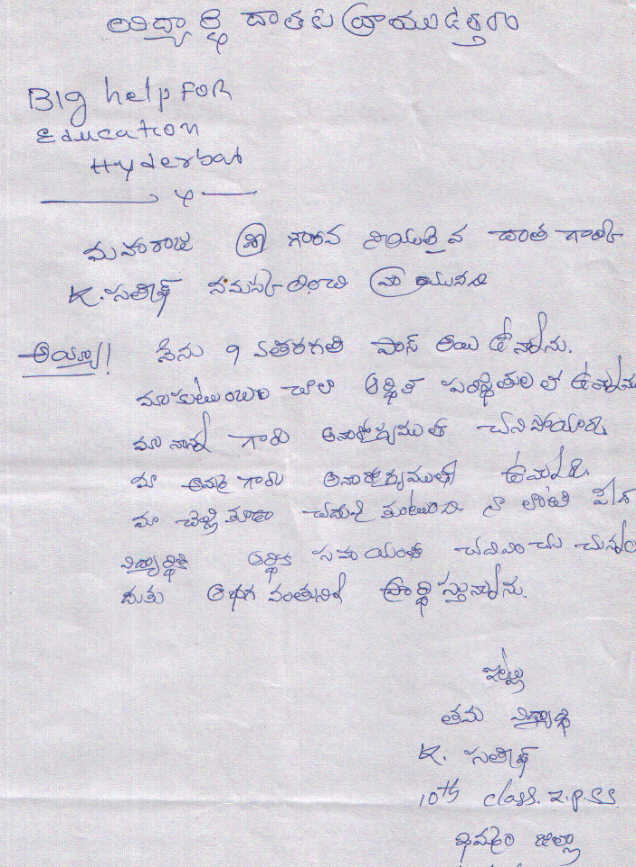 విద్యార్థి దాతకు వ్రాయు ఉత్తరం
Big help FOR
Education
Hyderbad
మహారాజ శ్రీ గౌరవ నియులైవ దాత గారికి
K. సతీష్ నమస్కరించి వ్రాయునది
అయ్యా! నేను 9 వతరగతి పాస్ అయి ఉన్నాను.
మా కుటుంబం చాల ఆర్థిత పరిస్థితులలో ఉన్నాము
మా నాన్న గారు అనారోగ్యముతో చనిపోయారు
మా అమ్మ గారు అనారోగ్యముతో ఉన్నారు
మా చెల్లి కూడా చదువు తుంటుంది నా లాంటి పేద
విద్యార్థికి ఆర్థిక సహాయంతో చదివించు చున్నం
దుకు ఆభగ వంతునికి ప్రార్థిస్తున్నాను.
ఇట్లు
తమ విద్యార్థి
K. సతీష్
10th class. Z.P.SS
ఖమ్మం జిల్లా